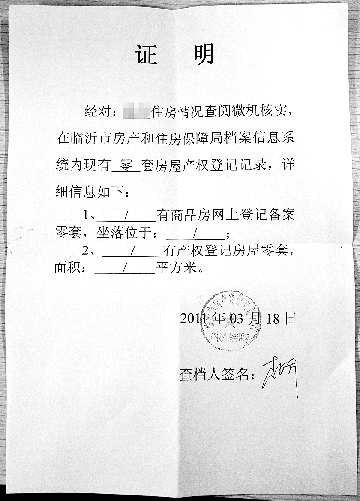 证 明
经对：住房情况查阅微机核实，
在临沂市房产和住房保障局档案信息系
统内现有 零 套房屋产权登记记录，详
细信息如下：
1、 / 有商品房网上登记备案
零套，坐落位于： / ；
2、 / 有产权登记房屋零套，
面积： / 平方米。
2011 年 03 月 18 日
查档人签名：